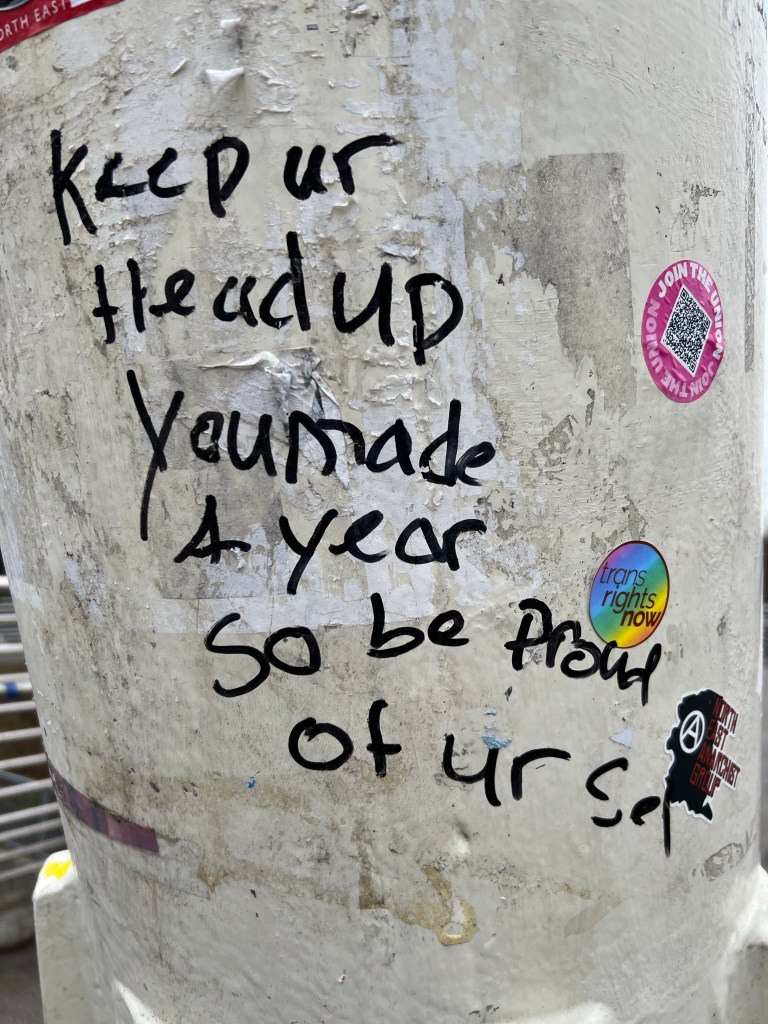 ORTH EAST
Keep ur
Head up
You made
A year
So be Proud
of ur sel
JOIN THE UNION JOIN THE UNION
trans
rights
now
NORTH
EAST
ANARCHIST
GROUP